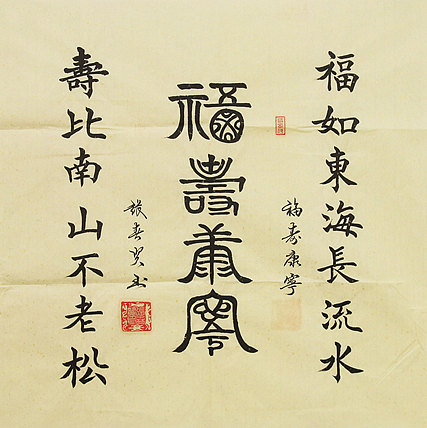 福如東海長流水
福寿康寧
福壽康寧
壽比南山不老松